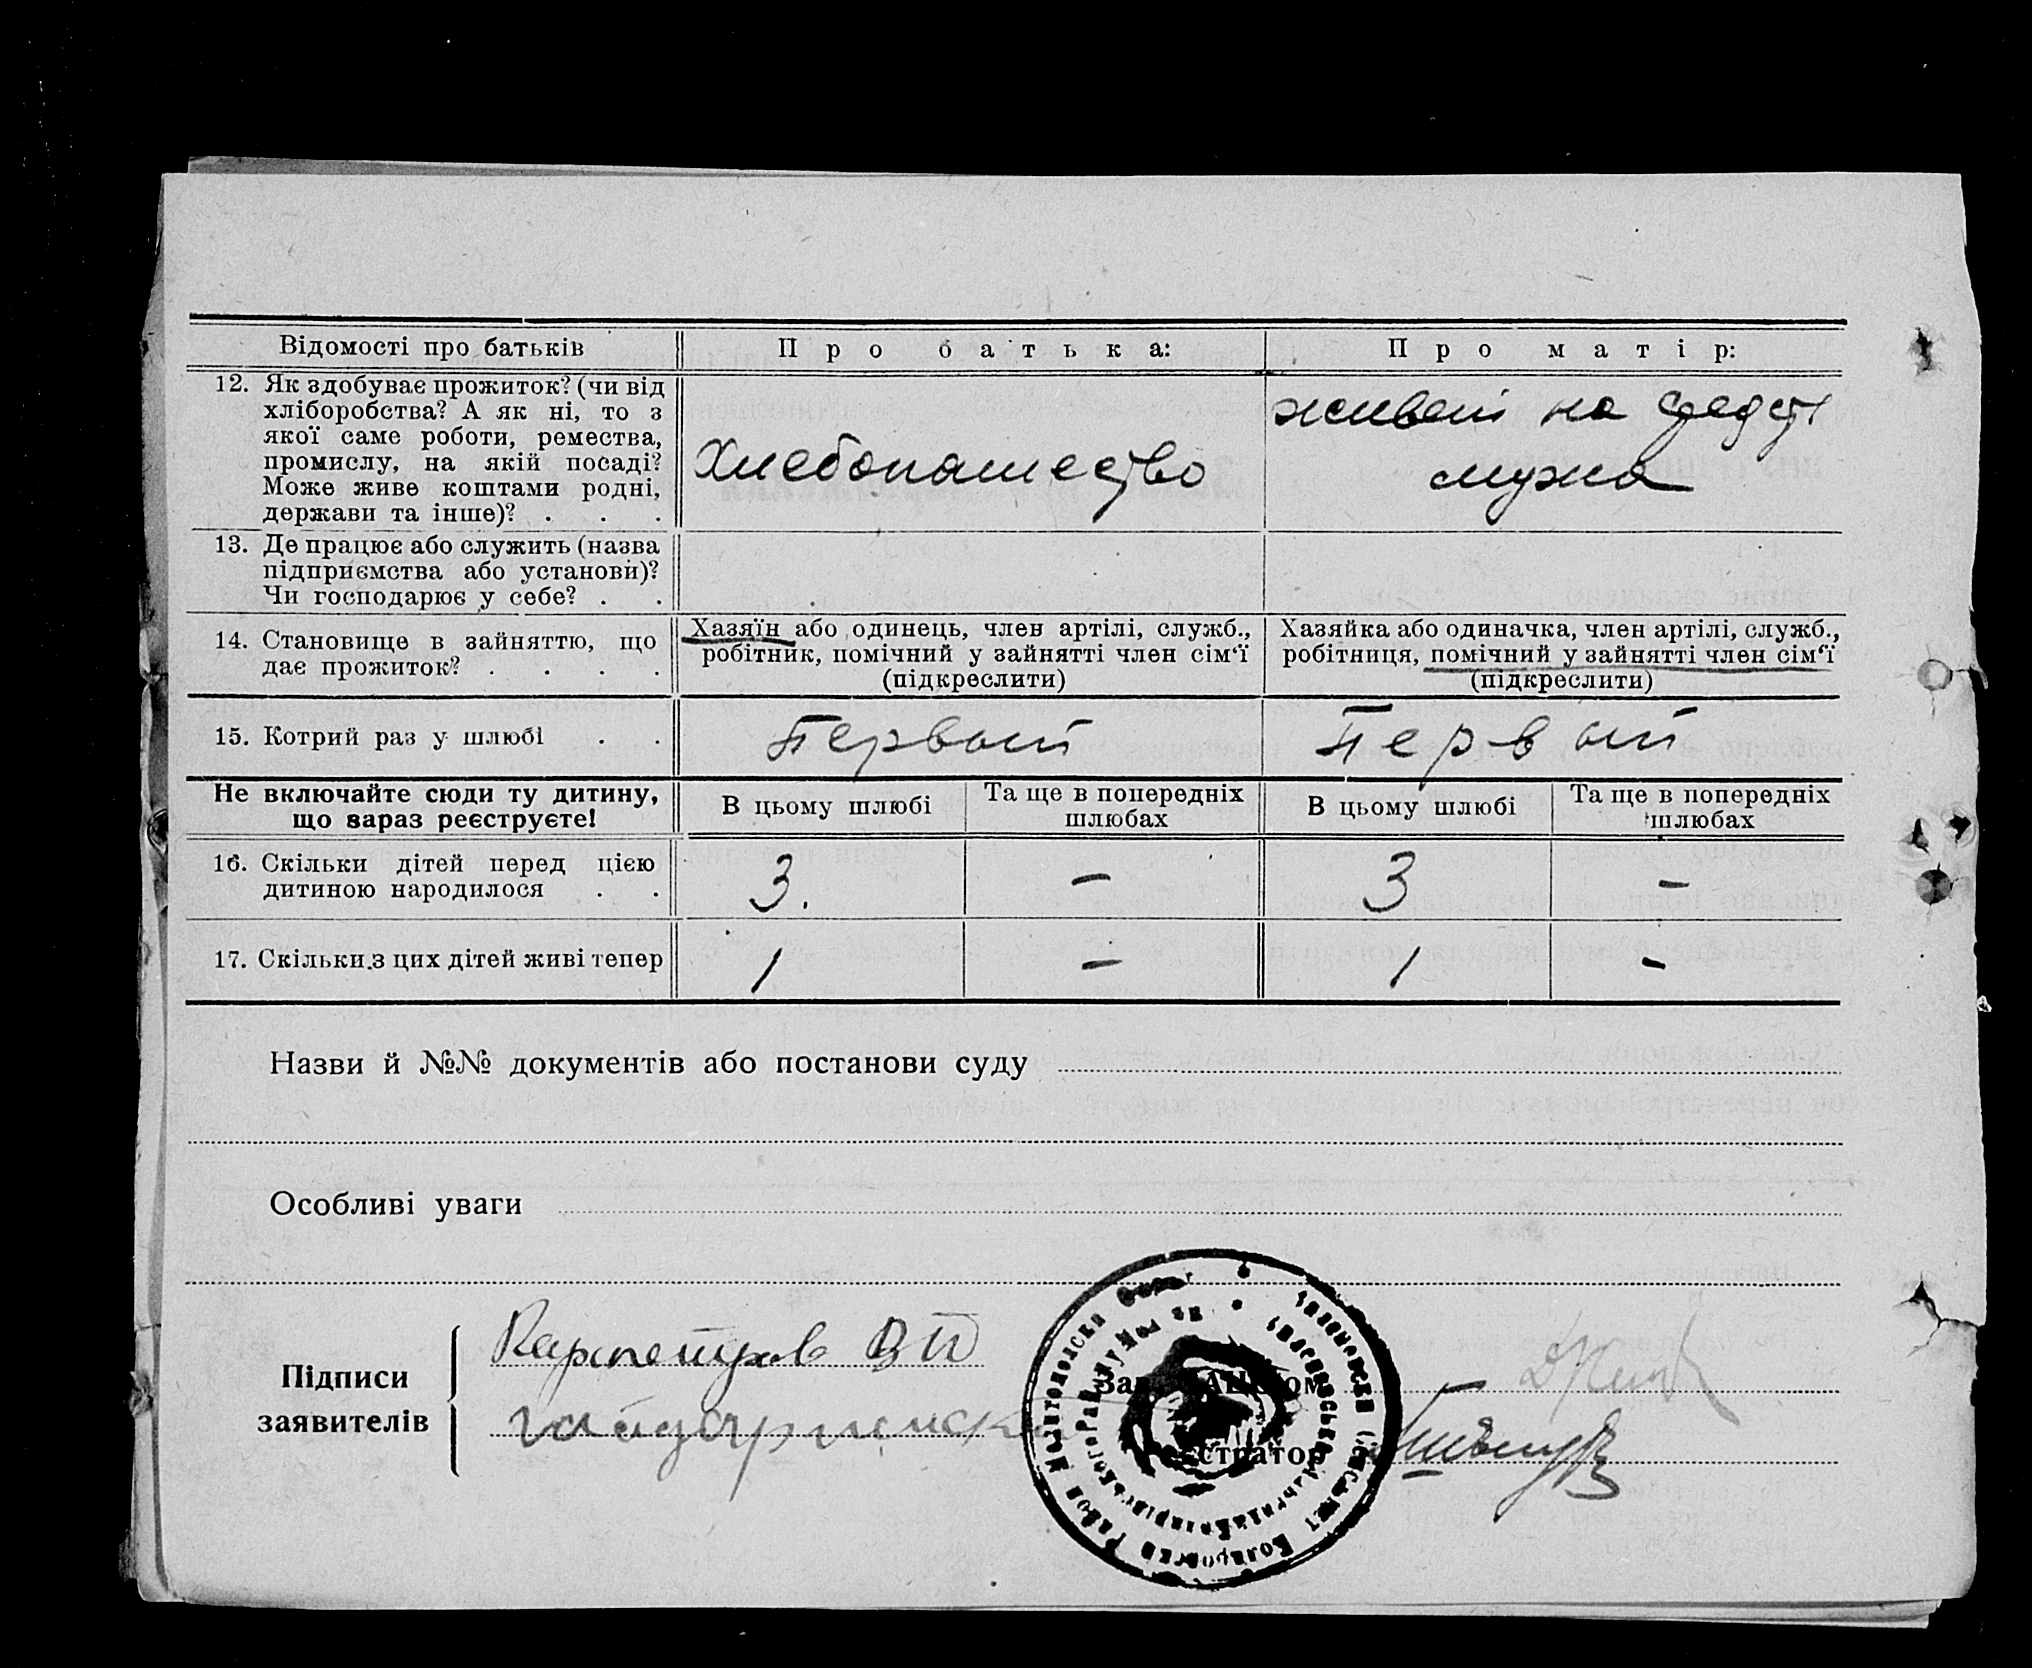 Відомості про батьків
Про батька:
Про матір:
12. Як здобуває прожиток? (чи від
хліборобства? А як ні, то з
якої саме роботи, ремества,
промислу, на якій посаді?
Може живе коштами родні,
держави та інше)? . . .
Хлебопашество
живет на средст
мужа
13. Де працює або служить (назва
підприємства або установи)?
Чи господарює у себе? . .
14. Становище в зайняттю, що
дає прожиток? . . . .
Хазяїн або одинець, член артілі, служб.,
робітник, помічний у зайнятті член сім‘ї
(підкреслити)
Хазяйка або одиначка, член артілі, служб.,
робітниця, помічний у зайнятті член сім‘ї
(підкреслити)
15. Котрий раз у шлюбі . .
Первый
Первый
Не включайте сюди ту дитину,
що зараз реєструєте!
В цьому шлюбі
Та ще в попередніх
шлюбах
В цьому шлюбі
Та ще в попередніх
шлюбах
16. Скільки дітей перед цією
дитиною народилося . .
3.
–
3
–
17. Скільки з цих дітей живі тепер
1
–
1
–
Назви й №№ документів або постанови суду
Особливі уваги
Підписи
заявителів
Зав.
стратор